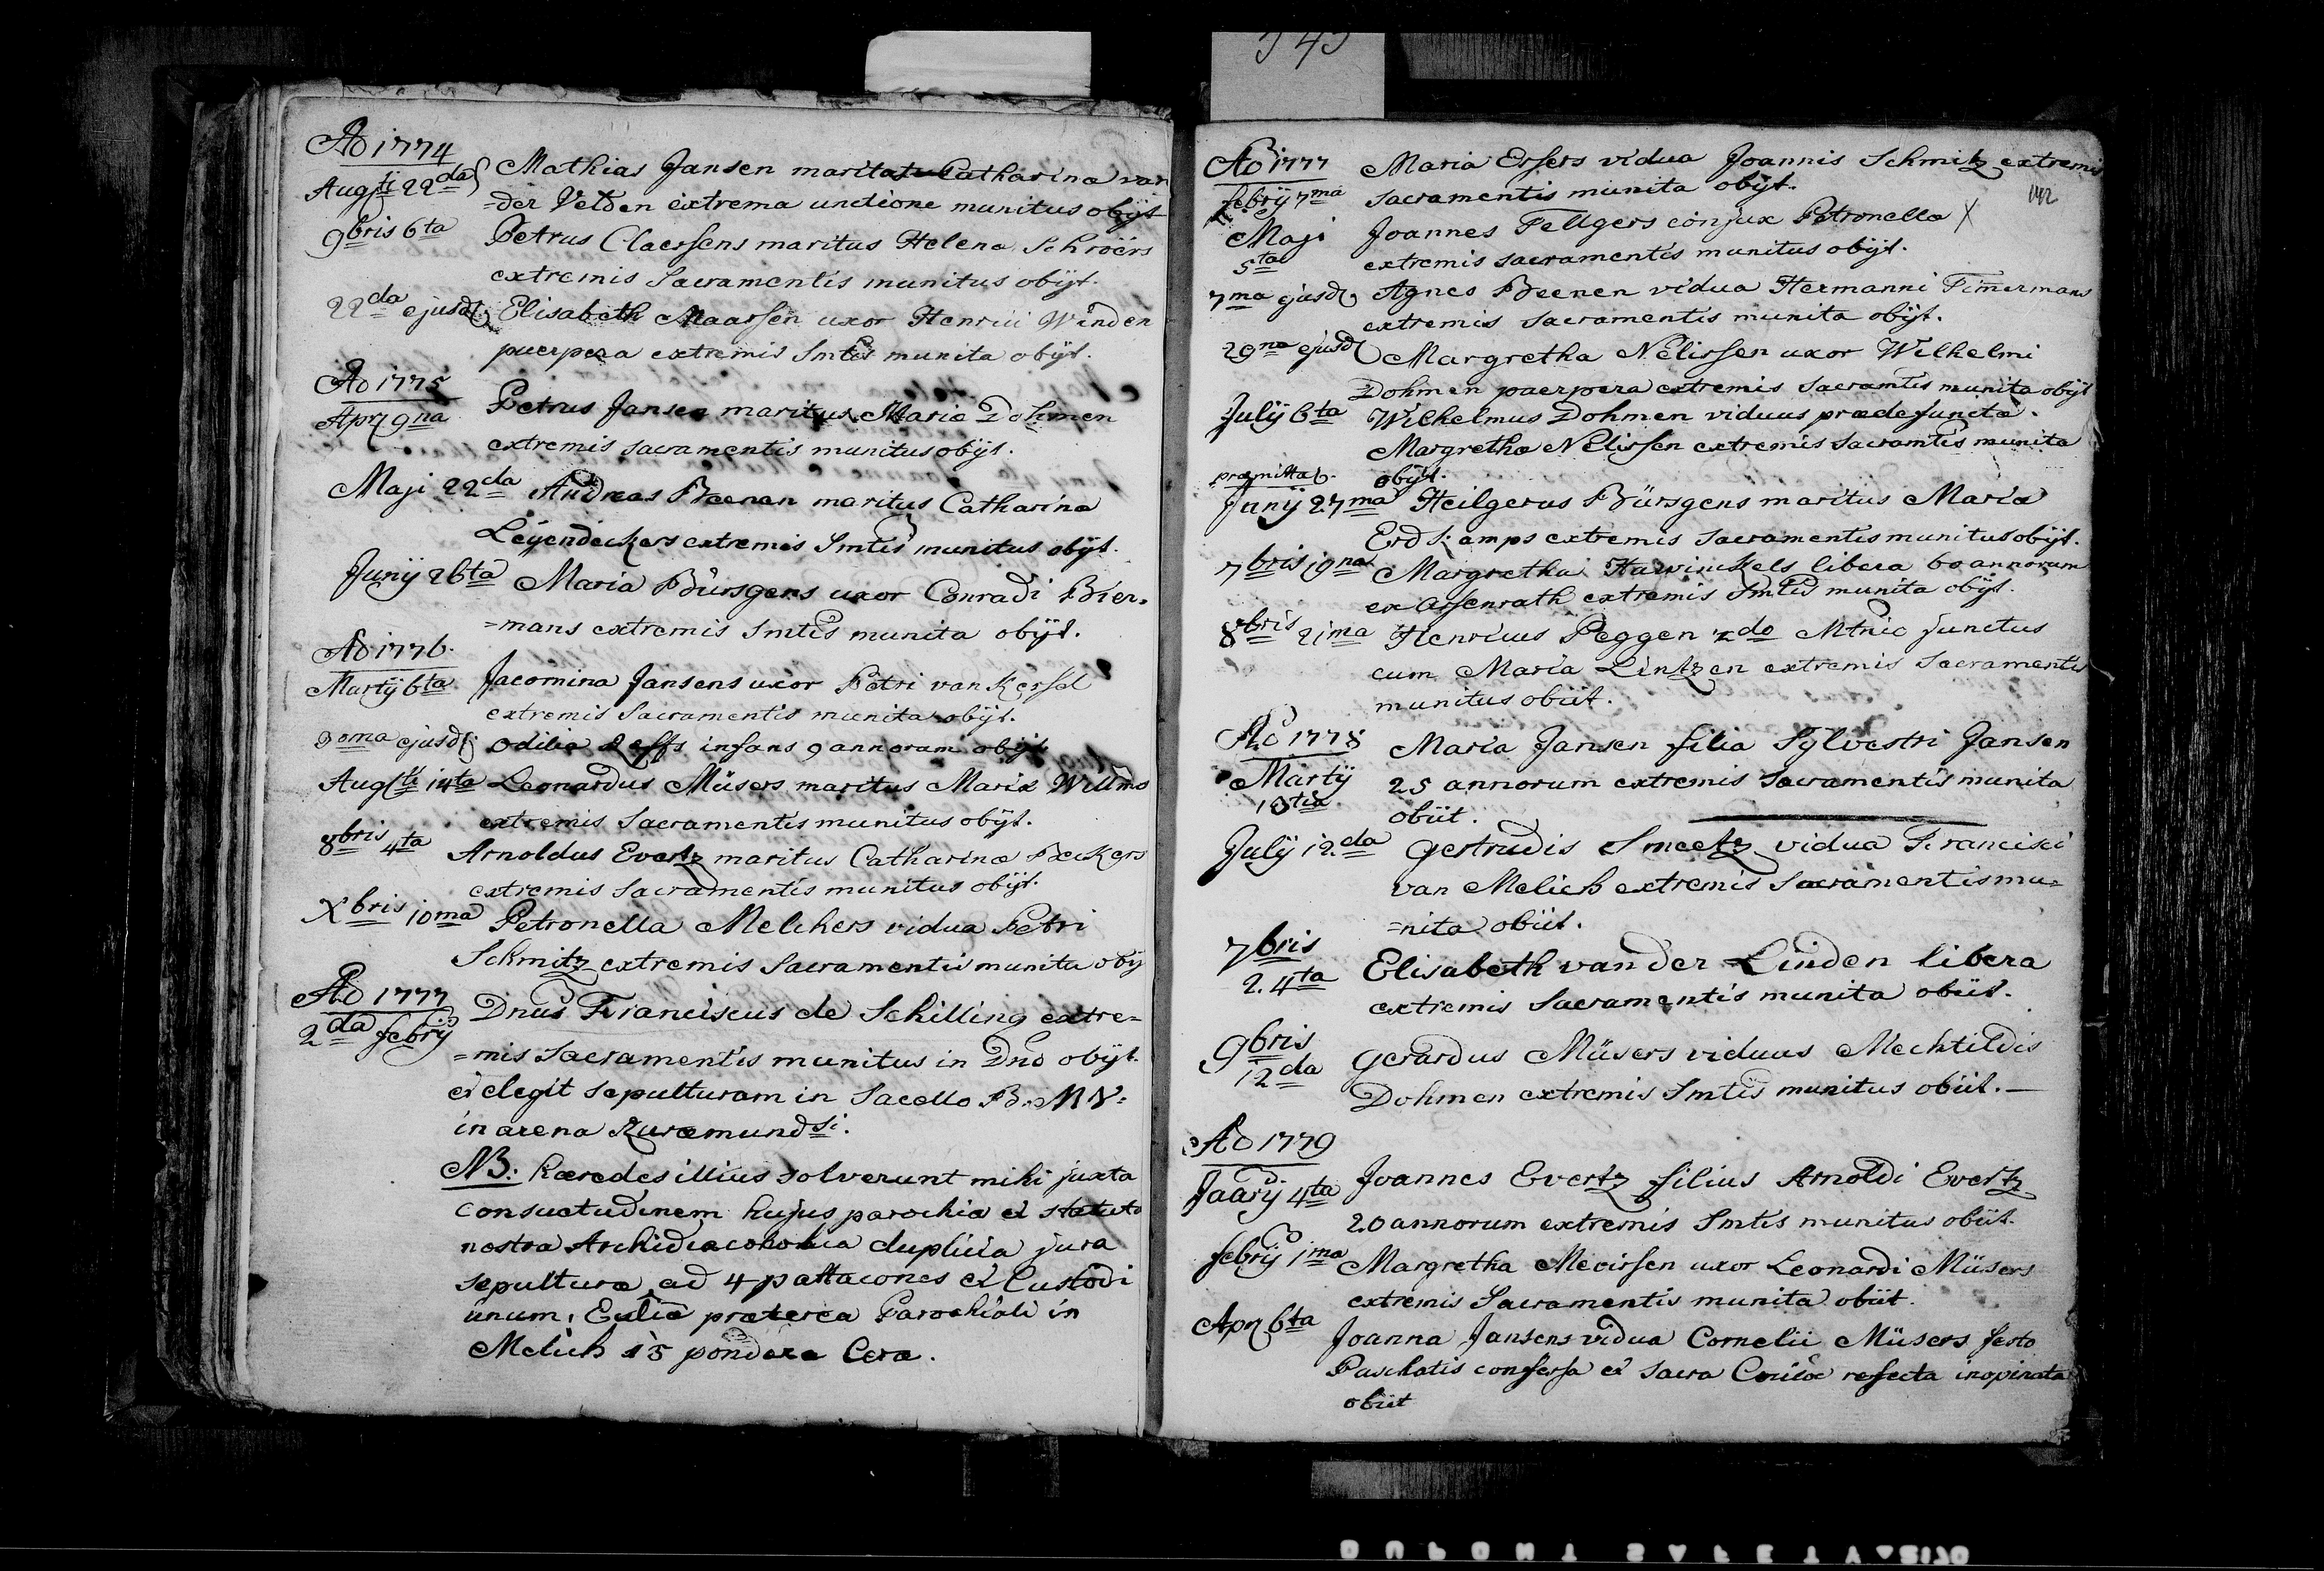 343
Ao 1774
Augsti 22da Mathias Jansen maritus Catharina van
=der Velden extrema unctione munitus obijt
9bris 6ta Petrus Claessens maritus Helena Schroërs
extremis Sacramentis munitus obijt.
22da ejusd. Elisabeth Maassen uxor Henrici Winden
puerpera extremis Smtis munita obijt.
Ao 1775
Apr 9na Petrus Jansen maritus Maria Dohmen
extremis sacramentis munitus obijt.
Maji 22da Andreas Beenen maritus Catharina
Leijendeckers extremis Smtis munitus obijt.
Junij 26ta Maria Bürsgens uxor Conradi Bier=
=mans extremis Smtis munita obijt.
Ao 1776.
Martij 6ta Jacomina Jansens uxor Petri van Kessel
extremis Sacramentis munita obijt.
30ma ejusd. Odilia infans 9 annorum obijt
Augsti 14ta Leonardus Müsers maritus Maria Willms
extremis Sacramentis munitus obijt.
8bris 4ta Arnoldus Evertz maritus Catharina Beckers
extremis Sacramentis munitus obijt.
Xbris 10ma Petronella Melchers vidua Petri
Schmitz extremis Sacramentis munita obij
Ao 1777
2da febrij Dnus Franciscus de Schilling extre=
=mis Sacramentis munitus in Dno obijt.
et elegit sepulturam in Sacello B. M V.
in arena Ruraemundsi.
NB: haeredes illius solverunt mihi juxta
consuetudinem hujus parochia et statuta
nostra Archidiaconalia duplicia jura
sepultura ad 4 pattacones et Custodi
unum, Eclia praeterea Parochiali in
Melich 15 pondera Cera.
Ao 1777
febrij 7ma Maria Essers vidua Joannis Schmitz extremis
sacramentis munita obijt.
142
Maji 5ta Joannes Fellgers conjux Petronella X
extremis sacramentis munitus obijt.
7ma ejusd. Agnes Beenen vidua Hermanni Timermans
extremis sacramentis munita obijt.
29na ejusd. Margretha Nelissen uxor Wilhelmi
Dohmen puerpera extremis Sacramtis munita obijt
Julij 6ta Wilhelmus Dohmen viduus praedefuncta
Margretha Nelissen extremis sacramtis munita
obijt.
praemittat.
Junij 27ma Heilgerus Bürsgens maritus Maria
Erdkamps extremis Sacramentis munitus obijt.
7bris 19na Margretha Hawinckels libera 60 annorum
ex Assenrath extremis Smtis munita obijt.
8bris 21ma Henricus Peggen 2do Mtnio junctus
cum Maria Lintzen extremis Sacramentis
munitus obiit.
Ao 1778
Martij Maria Jansen filia Sijlvestri Jansen
25 annorum extremis Sacramentis munita
obiit.
Julij 12da Gertrudis Smeetz vidua Francisci
van Melich extremis Sacramentis mu=
=nita obiit.
7bris
2.4ta Elisabeth vander Linden libera
extremis Sacramentis munita obiit.
9bris
12da Gerardus Müsers viduus Mechtildis
Dohmen extremis Smtis munitus obiit.—
Ao 1779
Jaarij 4ta Joannes Evertz filius Arnoldi Evertz
20 annorum extremis Smtis munitus obiit.
febrij 1ma Margretha Meerssen uxor Leonardi Müsers
extremis Sacramentis munita obiit.
Apr 6ta Joanna Jansens vidua Cornelii Müsers festo
Paschatis confessa et sacra Coñioe refecta inopinata
obiit
DUPONT SAFETY